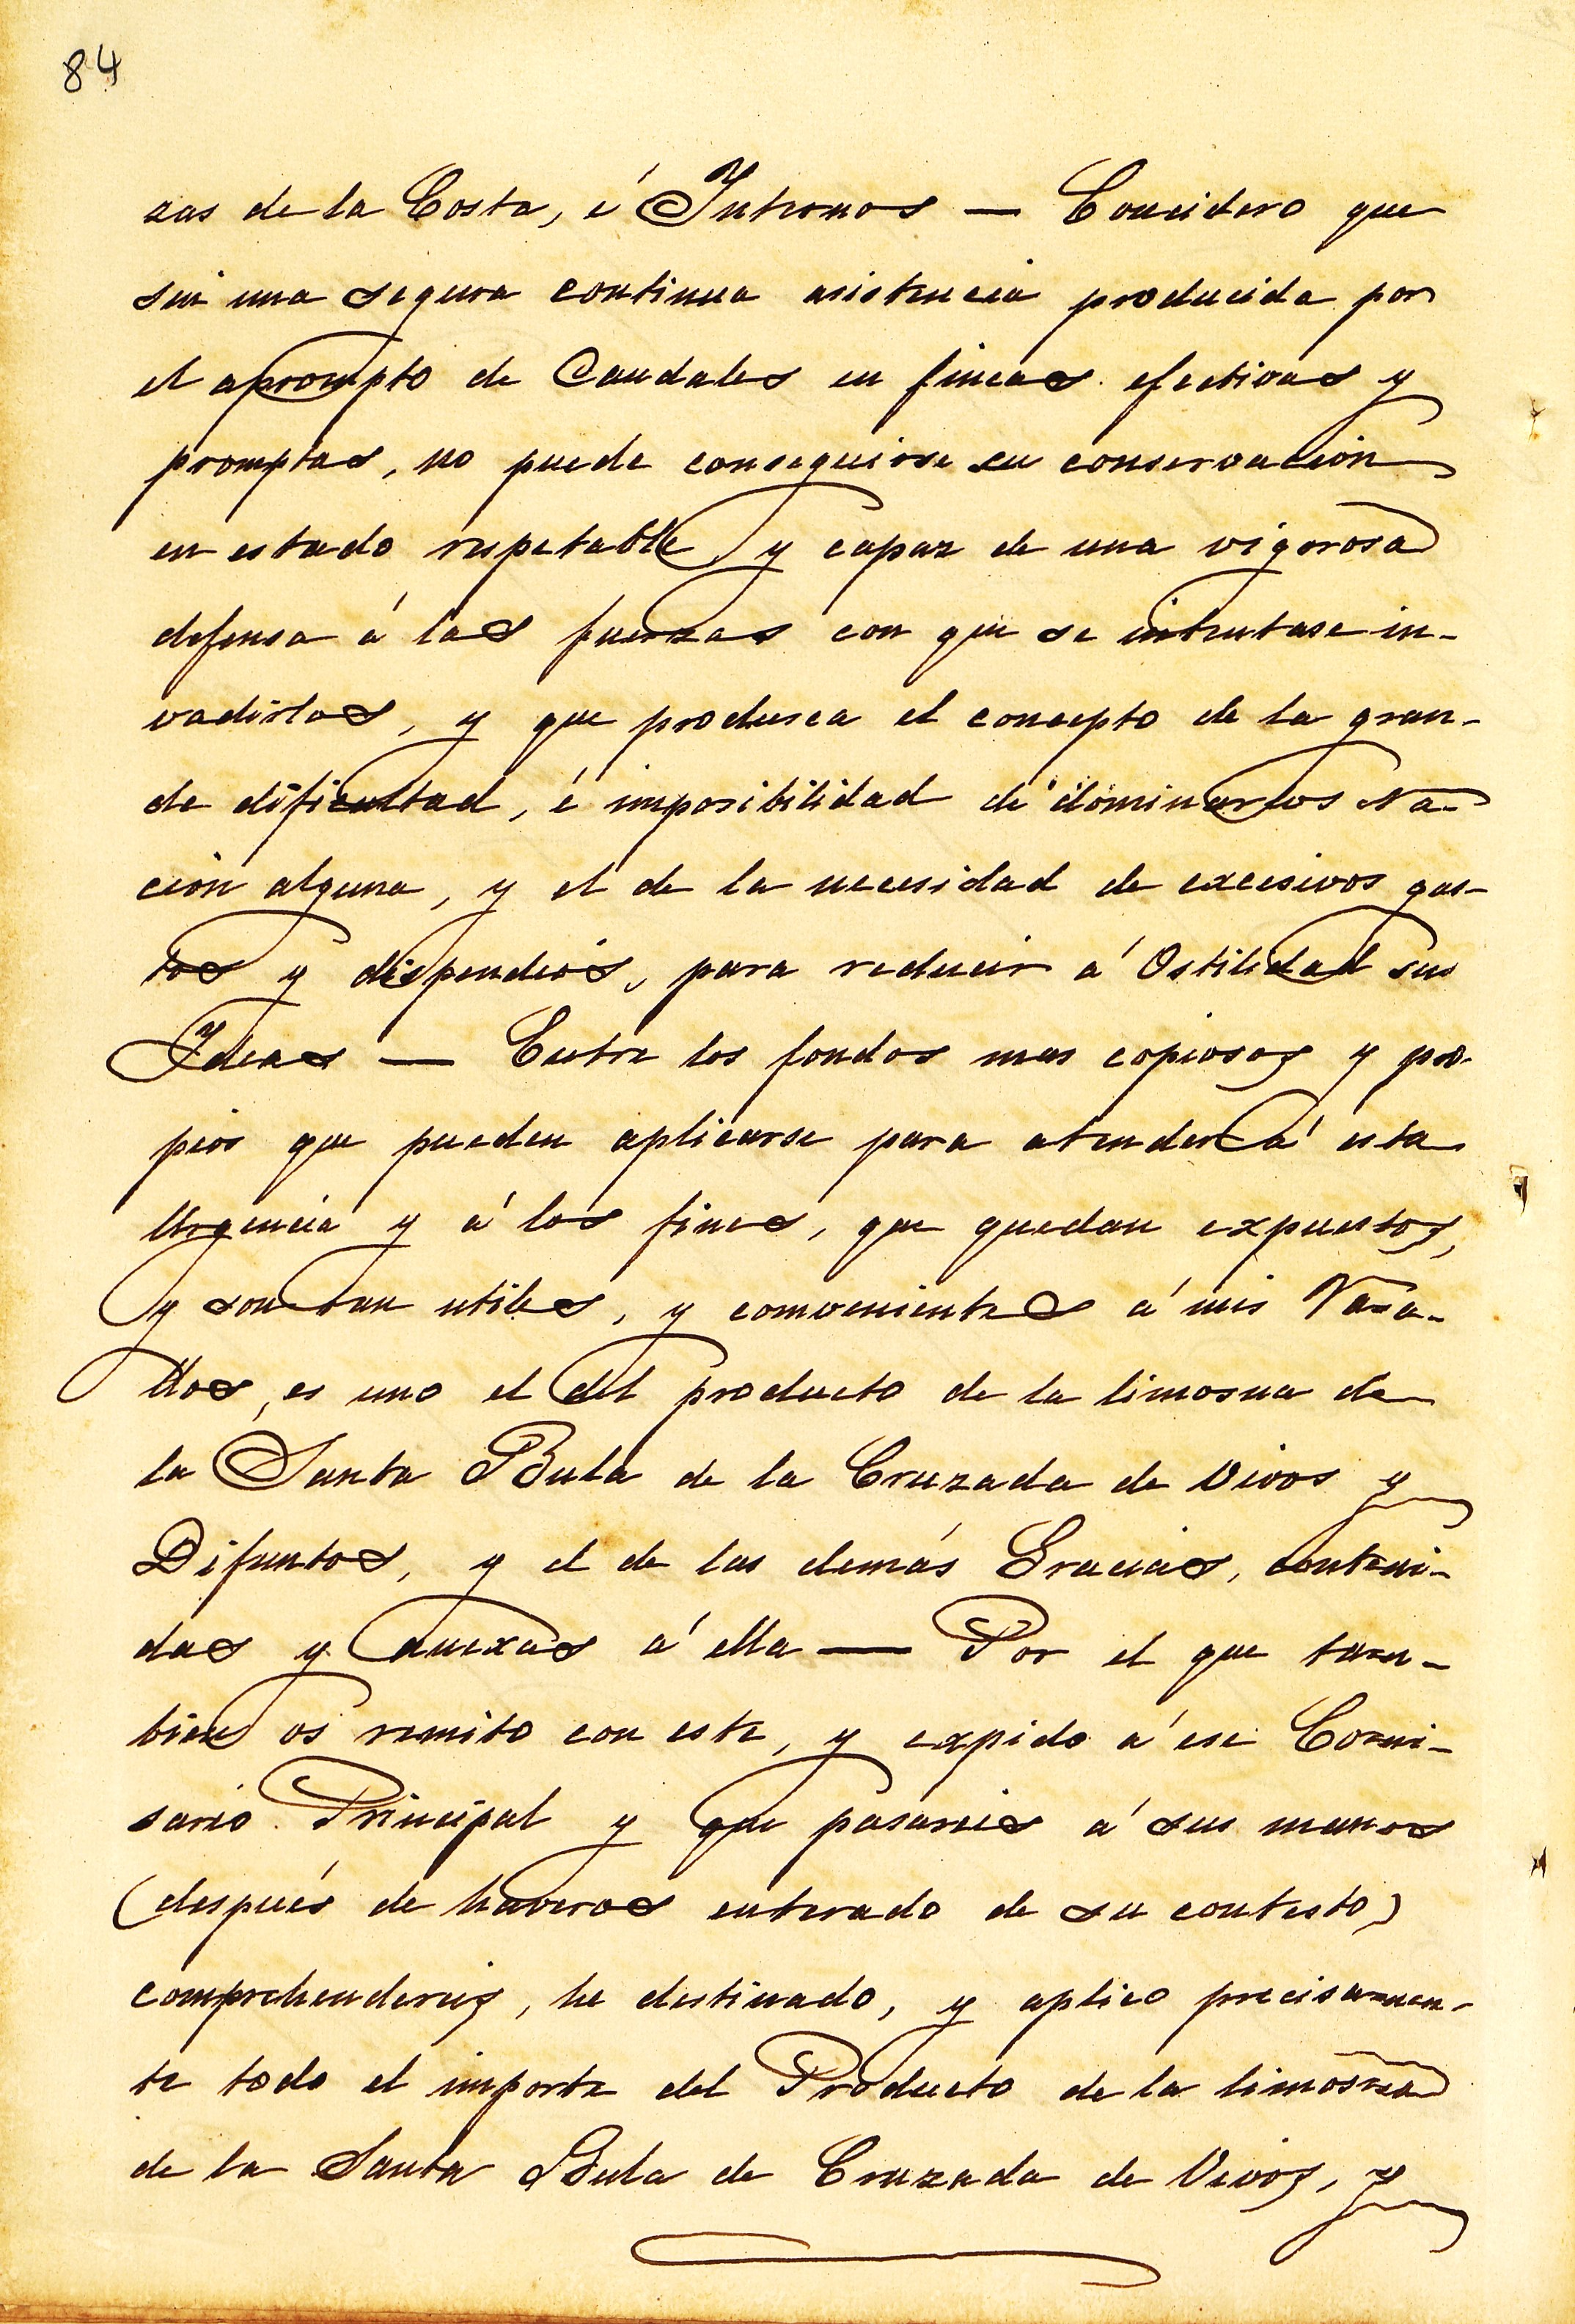 84
zas de la Costa, é Internos — Concidero que
sin una segura continua asistencia producida por
el aprompto de Caudales en fincas efectivas y
promptas, no puede conseguirse su conservacion
en estado respetable y capaz de una vigorosa
defensa á las fuerzas con que se intentase in-
vadirlas, y que produsca el concepto de la gran-
de dificultad, é imposibilidad de dominarlos Na-
cion alguna, y el de la necesidad de excesivos gas-
tos y dispendios, para reducir á Ostilidad sus
Ideas — Entre los fondos mas copiosos y pro-
pios que pueden aplicarse para atender á esta
Urgencia y á los fines, que quedan expuestos,
y son tan utiles, y convenientes á mis Vasa-
llos, es uno el del producto de la limosna de
la Santa Bula de la Cruzada de Vivos y
Difuntos, y el de las demás Gracias, conteni-
das y anexas á ella — Por el que tam-
bien os remito con este, y expido á ese Comi-
sario Principal y que pasareis á sus manos
(después de haveros enterado de su contesto)
comprehendereis, he destinado, y aplico precisamen-
te todo el importe del Producto de la limosna
de la Santa Bula de Cruzada de Vivos, y